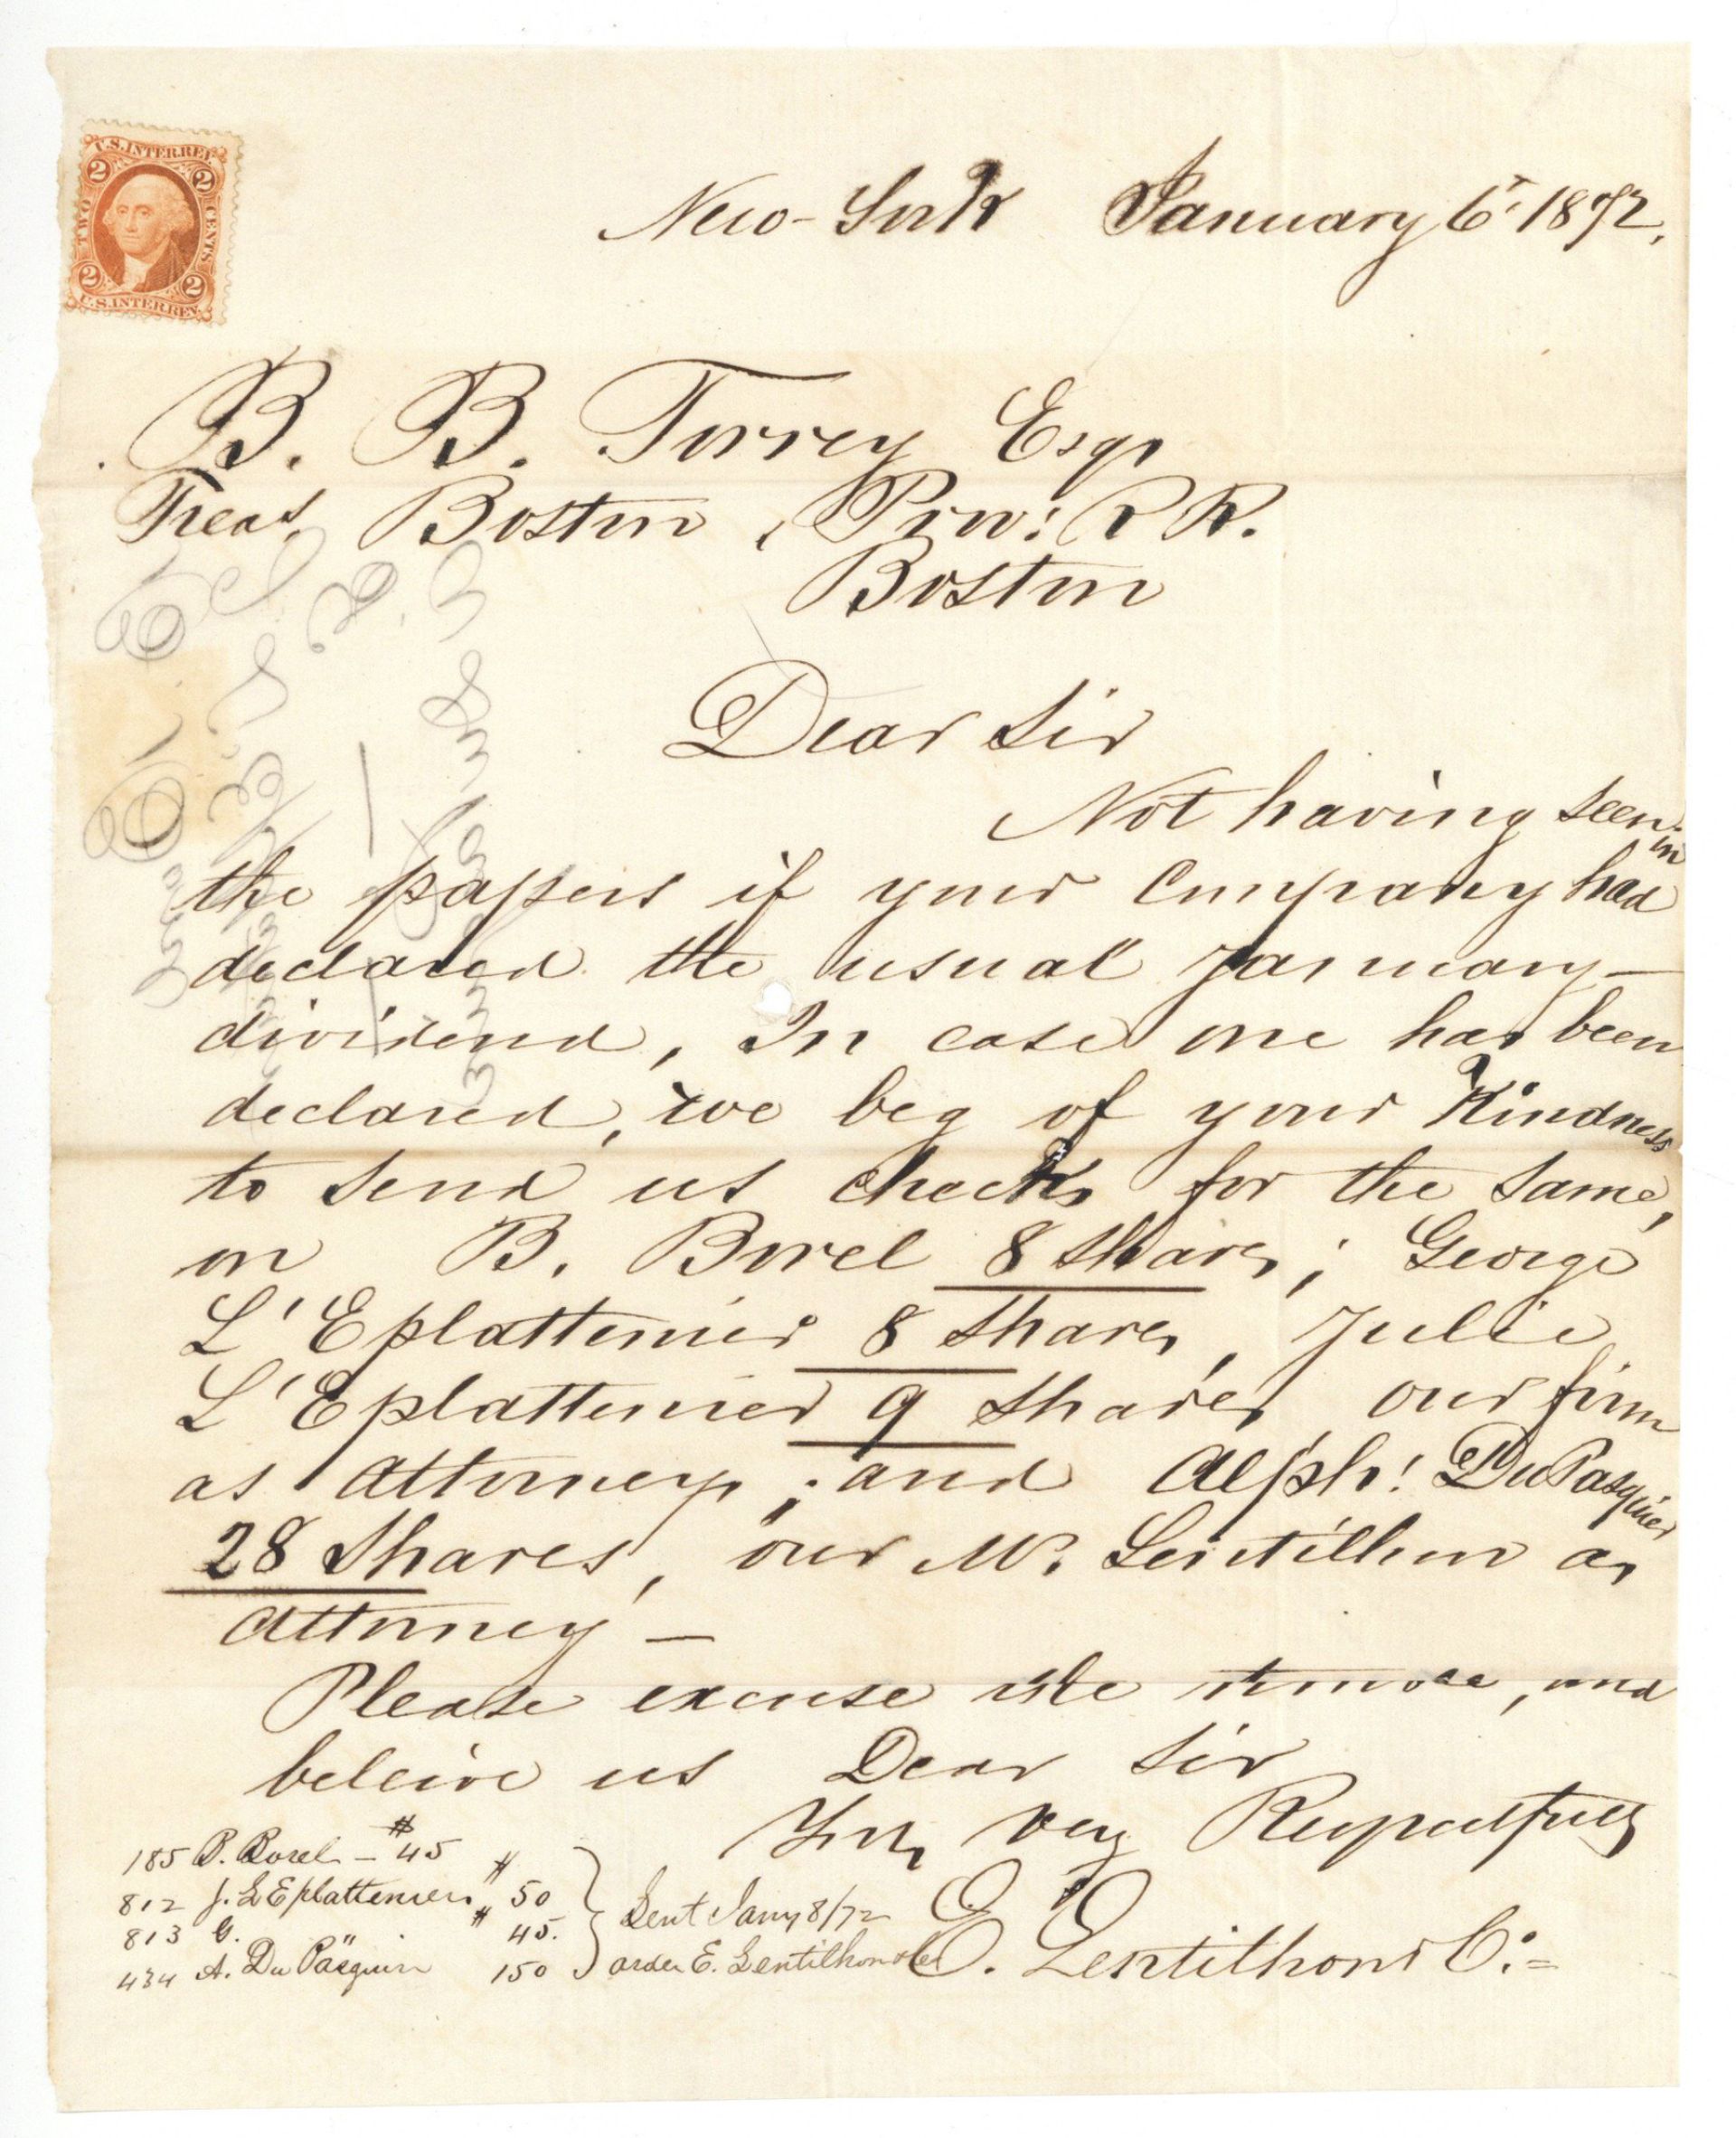 U.S. INTER. REV.
2 2
TWO CENTS
2 2
U.S. INTER. REV.
New-York January 6t 1872,
B. B. Torrey Esqr
Treas. Boston & Prov: R R.
Boston
Dear Sir
Not having seen in
the papers if your Company had
declared the usual January—
dividend, In case one has been
declared, we beg of your Kindness
to send us checks for the same,
on B. Borel 8 Shares; George
L'Eplattenier 8 Shares, Julie
L'Eplattenier 9 Shares our firm
as attorneys; and Alph: DuPasquier
28 Shares, our Mr. Lentilhon as
attorney —
Please excuse the trouble, and
beleive us Dear Sir
Yrs, very Respectfully
E. Lentilhon & Co.=
185 B. Borel — $45
812 J. L'Eplattenier $ 50
813 G. " $ 45.
434 A. Du Pasquier 150
Sent Jany 8/72
order E. Lentilhon & Co